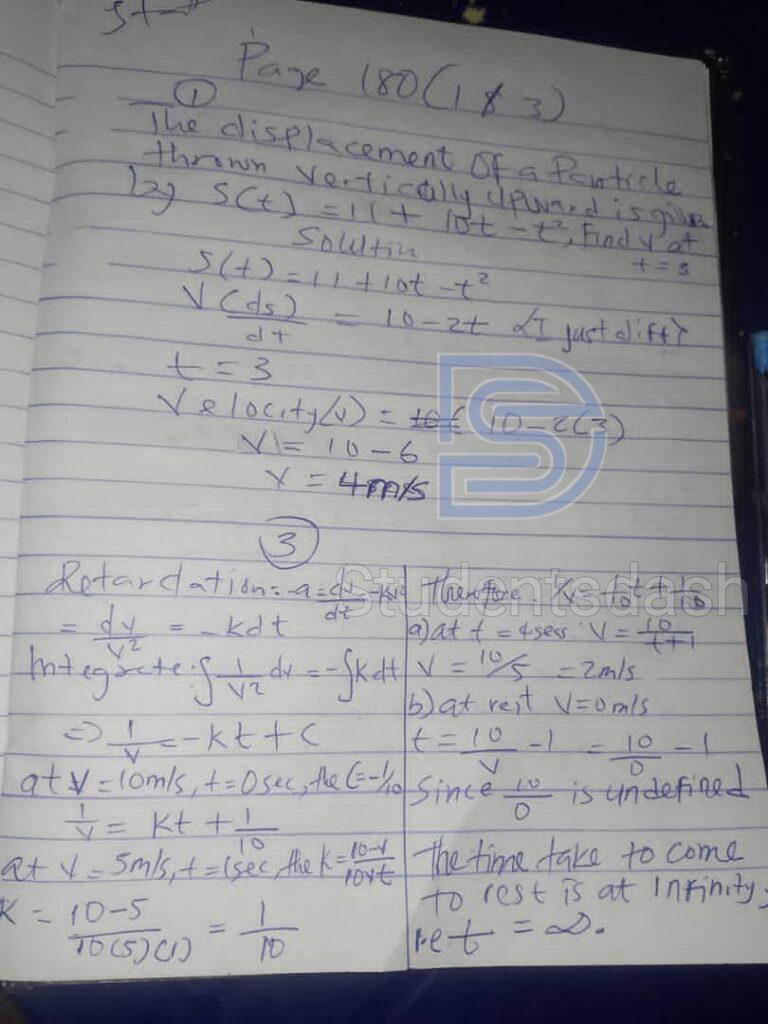 Page 180 (1 & 3)
①
The displacement of a Particle
thrown vertically upward is given
by S(t) = 11 + 10t - t², Find V at
t = 3
Solution
S(t) = 11 + 10t - t²
V (ds)/dt = 10 - 2t <I just diff>
t = 3
Velocity (v) = 10 - 2(3)
V = 10 - 6
V = 4m/s
③
Retardation = -a = dv/dt = -kv²
= dv/v² = -kdt
Integrate: ∫ 1/v² dv = -∫ k dt
=> 1/v = -kt + C
at V = 10m/s, t = 0sec, the C = -1/10
1/v = kt + 1/10
at V = 5m/s, t = 1sec, the k = 10-v/10vt
K = 10-5/10(5)(1) = 1/10
Therefore 1/v = 1/10 t + 1/10
a) at t = 4secs V = 10/t+1
V = 10/5 = 2m/s
b) at rest V = 0m/s
t = 10/v - 1 = 10/0 - 1
Since 10/0 is undefined
the time take to come
to rest is at infinity,
i.e t = ∞.
DS
Studentsdash